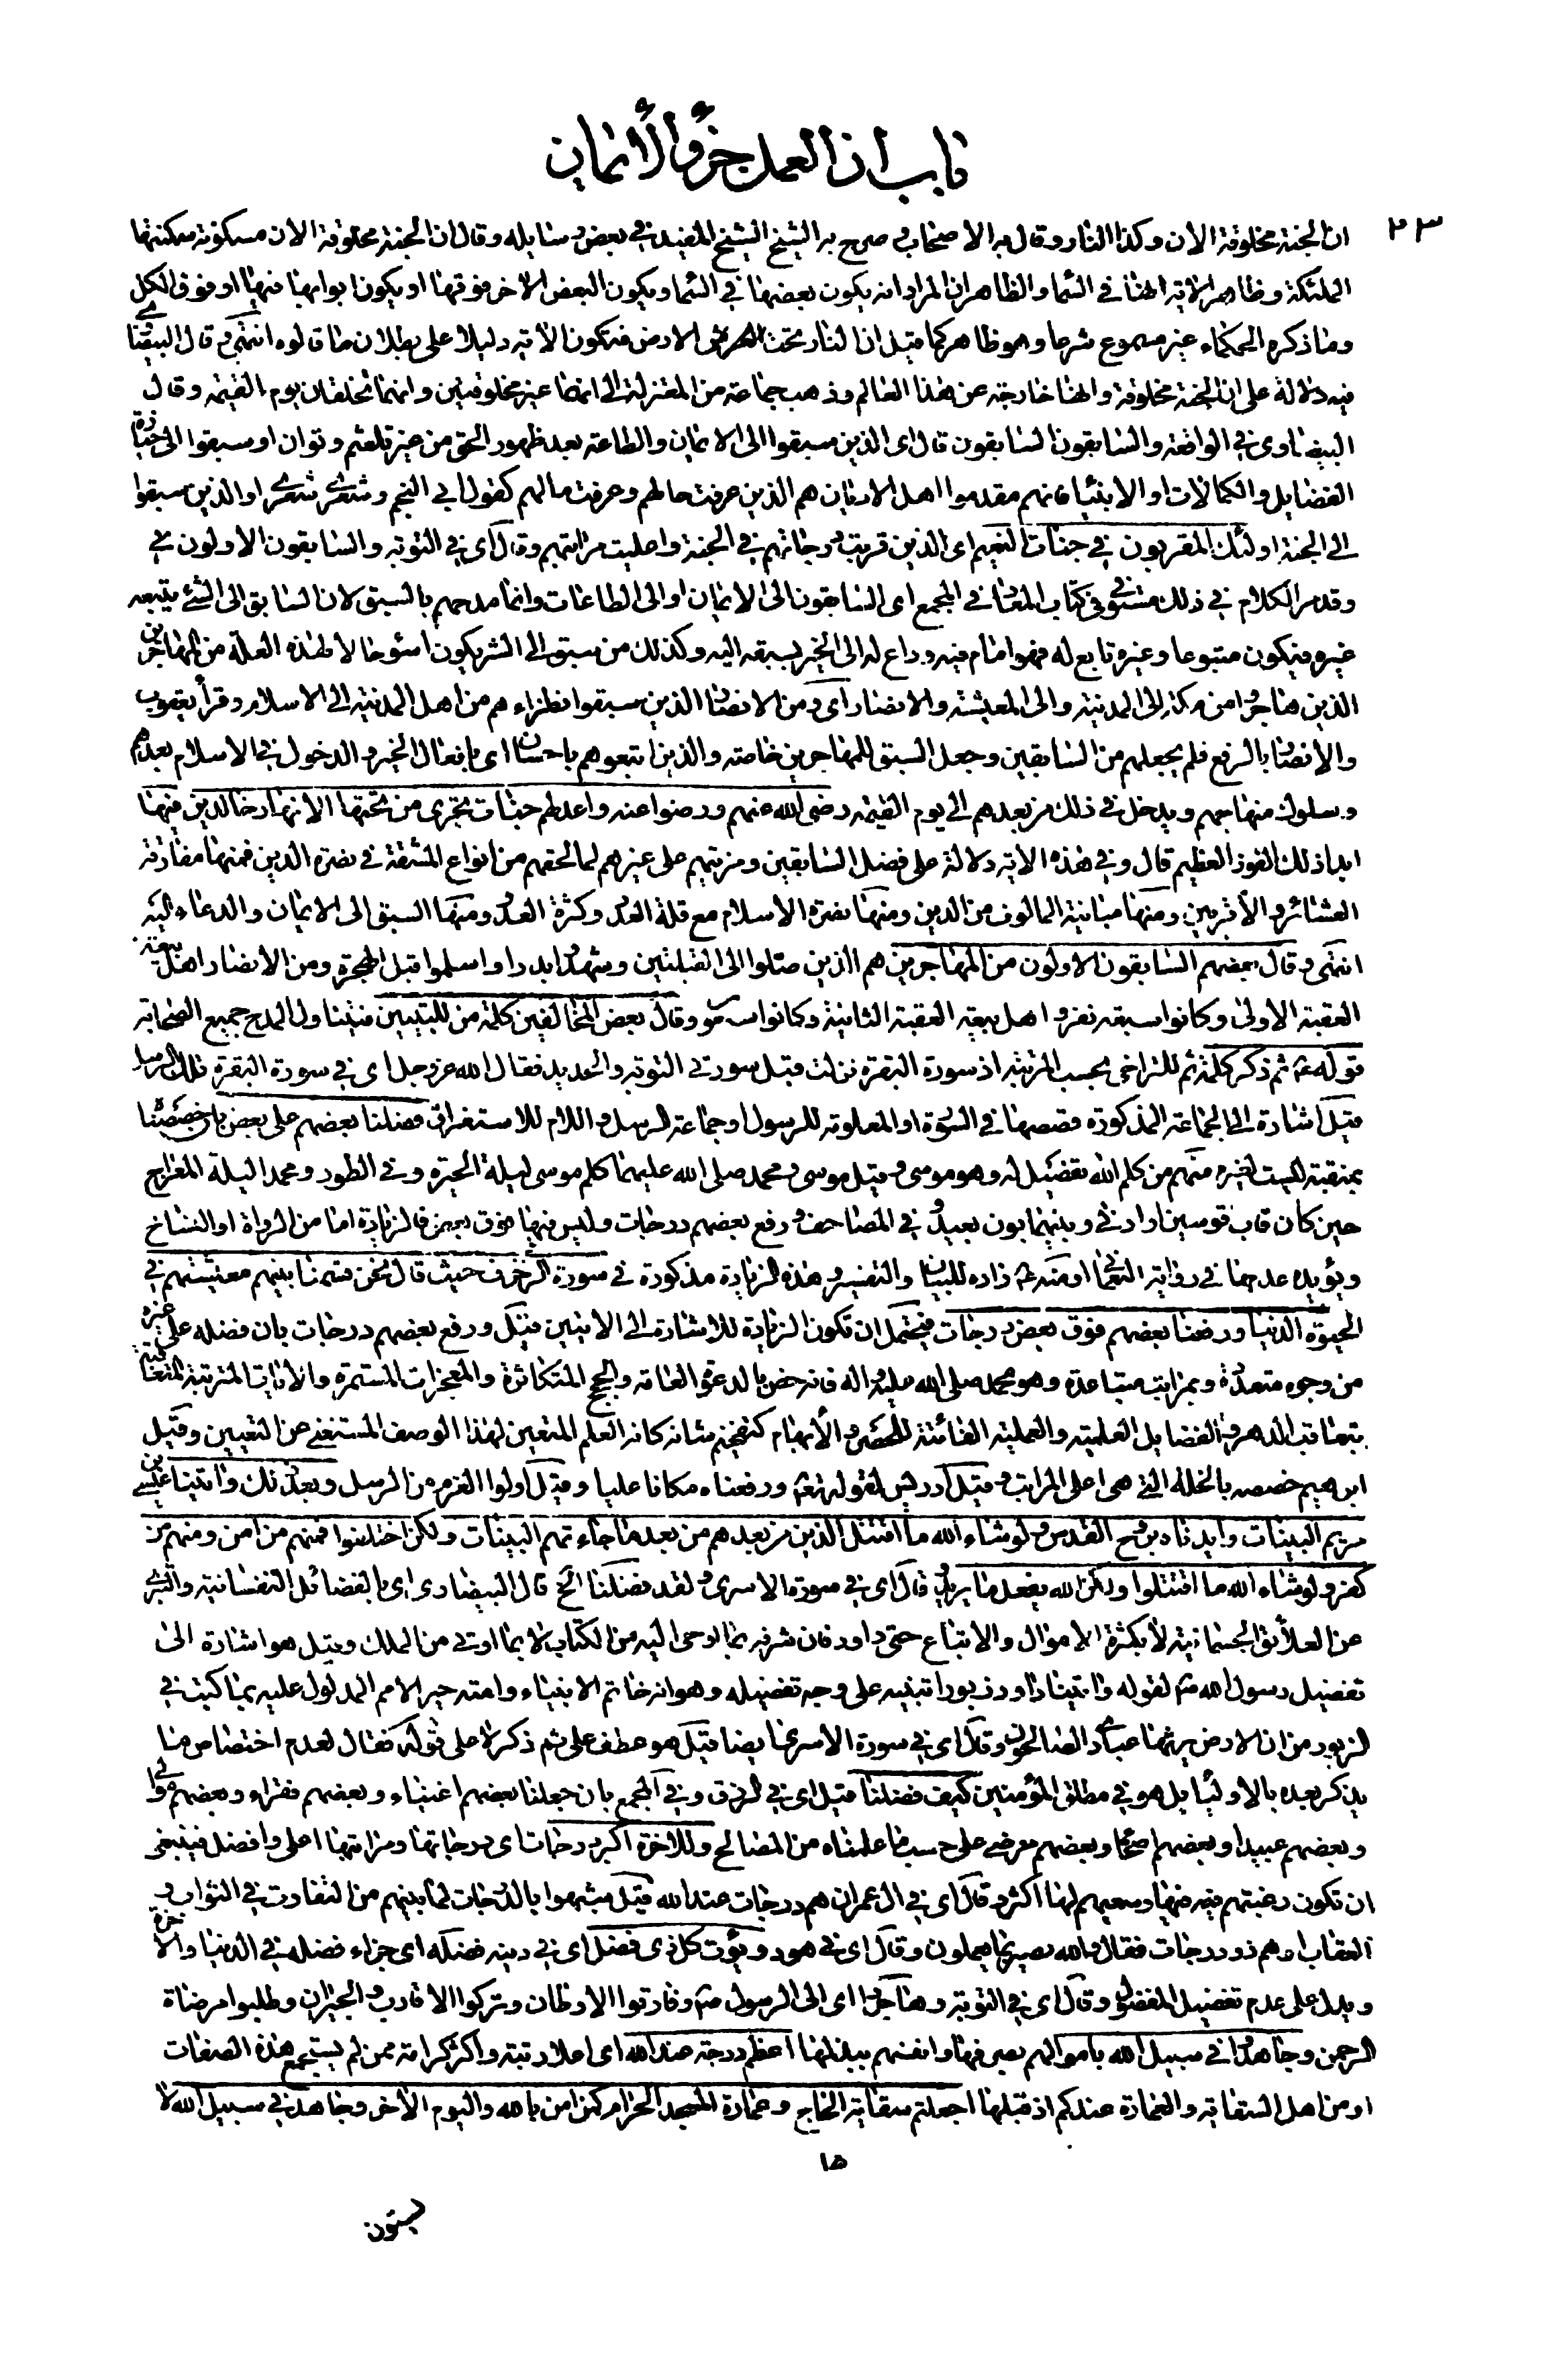 باب ان العمل جزء الأيمان
٢٣
ان الجنة مخلوقة الان وكذا النار وقال به الاصحاب وصرح به الشيخ الشيخ المفيد في بعض رسايله وقال ان الجنة مخلوقة الان مسكونة سكنتها
الملئكة وظاهر الاية انها في السما والظاهر ان المراد انه يكون بعضها في السما ويكون البعض الاخر فوقها او يكون ابوابها فيها او فوق الكل
وما ذكره الحكماء غير مسموع شرعا وهو ظاهر كما قيل ان النار تحت الارض فتكون الأية دليلا على بطلان ما قالوه انتهى وقال البيضا
فيه دلالة على ان الجنة مخلوقة وانها خارجة عن هذا العالم وذهب جماعة من المعتزلة الى انهما غير مخلوقتين وانهما تخلقان يوم القيمه وقال
البيضاوى في الواقعة والسابقون السابقون قال اى الذين سبقوا الى الايمان والطاعة بعد ظهور الحق من غير تلعثم وتوان او سبقوا الى حيازة
الفضايل والكمالات او الانبيا فانهم مقدموا اهل الاديان هم الذين عرفت حالهم وعرفت مالهم كقول ابي النجم وشعري شعري او الذين سبقوا
الى الجنة اولئك المقربون في جنات النعيم اى الذين قربت درجاتهم في الجنة واعليت مراتبهم وقال اى في التوبه والسابقون الاولون
وقد مر الكلام في ذلك مستوفى في كتاب المعاد في المجمع اى السابقون الى الايمان او الى الطاعات وانما مدحهم بالسبق لان السابق الى الشئ يتبعه
غيره فيكون متبوعا وغيره تابع له فهو امام فيه وداع له الى الخير بسبقه اليه وكذلك من سبق الى الشر يكون اسوء حالا لهذه العلة من المهاجرين
الذين هاجروا من مكة الى المدينة والى الحبشة والانصار اى ومن الانصار الذين سبقوا نظراءهم من اهل المدينة الى الاسلام وقرأ يعقوب
والأنصار بالرفع فلم يجعلهم من السابقين وجعل السبق للمهاجرين خاصة والذين اتبعوهم باحسان اى بافعال الخير والدخول في الاسلام بعدهم
وسلوك منهاجهم ويدخل في ذلك من بعدهم الى يوم القيمه رضى الله عنهم ورضوا عنه واعد لهم جنات تجرى من تحتها الأنهار خالدين فيها
ابدا ذلك الفوز العظيم قال وفي هذه الاية دلالة على فضل السابقين ومزيتهم على غيرهم لما لحقهم من انواع المشقة في نصرة الدين فمنها مفارقة
العشائر والأقربين ومنها مباينة المالوف من الدين ومنها نصرة الاسلام مع قلة العدد وكثرة العدو ومنها السبق الى الايمان والدعاء اليه
انتهى وقال بعضهم السابقون الاولون من المهاجرين هم الذين صلوا الى القبلتين وشهدوا بدرا واسلموا قبل الهجرة ومن الانصار اهل بيعة
العقبة الاولى وكانوا سبعة نفر واهل بيعة العقبة الثانية وكانوا سبعون وقال بعض المخالفين كلمة من للتبيين فيتناول المدح جميع الصحابة
قوله ثم ذكر كلمة ثم للتراخى بحسب المرتبة اذ سورة البقرة نزلت قبل سورتى التوبه والحديد فقال الله عز وجل اى في سورة البقرة تلك الرسل
قيل اشارة الى الجماعة المذكورة قصصها في السورة او المعلومة للرسول او جماعة الرسل واللام للاستغراق فضلنا بعضهم على بعض بان خصصنا
بمنقبة ليست لغيره منهم من كلم الله تفصيل له وهو موسى وقيل موسى ومحمد صلى الله عليهما كلم موسى ليلة الحيرة وفي الطور ومحمدا ليلة المعراج
حين كان قاب قوسين او ادنى وبينهما بون بعيد في المصاحف ورفع بعضهم درجات وليس فيها فوق بعض فالزيادة اما من الرواة او النساخ
ويؤيده عدمها في رواية النعمانى او منه زاده للبيان والتفسير وهذه الزيادة مذكورة في سورة الزخرف حيث قال نحن قسمنا بينهم معيشتهم في
الحيوة الدنيا ورفعنا بعضهم فوق بعض درجات فيحتمل ان تكون الزيادة للاشارة الى الايتين قيل ورفع بعضهم درجات بان فضله على غيره
من وجوه متعددة وبمراتب متباعدة وهو محمد صلى الله عليه واله فانه خص بالدعوة العامه والحجج المتكاثرة والمعجزات المستمرة والايات المترتبة المتعاقبة
بتعاقب الدهر والفضايل العلمية والعملية الفائتة للحصر والأبهام كتفخيم شانه كانه العلم المتعين لهذا الوصف المستغنى عن التعيين وقيل
ابرهيم خصصه بالخلة التى هى اعلى المراتب وقيل ادريس لقوله تعالى ورفعناه مكانا عليا وقيل اولوا العزم من الرسل وبعد ذلك واتينا عيسى بن
مريم البينات وايدناه بروح القدس ولو شاء الله ما اقتتل الذين من بعدهم من بعد ما جاءتهم البينات ولكن اختلفوا فمنهم من امن ومنهم من
كفر ولو شاء الله ما اقتتلوا ولكن الله يفعل ما يريد قال اى في سورة الاسرى ولقد فضلنا الخ قال البيضاوى اى بالفضائل النفسانية والتبرى
عن العلائق الجسمانية لا بكثرة الاموال والاتباع حتى داود فان شرفه بما اوحى اليه من الكتاب لا بما اوتى من الملك وقيل هو اشارة الى
تفضيل رسول الله لقوله واتينا داود زبورا تنبيه على وجه تفضيله وهو انه خاتم الانبياء وامته خير الامم المدلول عليه بما كتب في
الزبور من ان الارض يرثها عبادى الصالحون وقال اى في سورة الاسرى ايضا قيل هو عطف على ثم ذكر لا على قوله فقال لعدم اختصاص ما
يذكر بعده بالاوليا بل هو في مطلق المؤمنين كيف فضلنا قيل اى في الرزق وفي المجمع بان جعلنا بعضهم اغنياء وبعضهم فقراء وبعضهم موالى
وبعضهم عبيدا وبعضهم اصحا وبعضهم مرضى على حسب ما علمناه من المصالح وللاخرة اكبر درجات اى درجاتها ومراتبها اعلى وافضل فينبغى
ان تكون رغبتهم فيه فيها وسعيهم لها اكثر وقال اى في ال عمران هم درجات عند الله قيل شبهوا بالدرجات لما بينهم من التفاوت في الثواب و
العقاب او هم ذوو درجات فقال والله بصير بما يعملون وقال اى في هود ويؤت كل ذى فضل اى في دينه فضله اى جزاء فضله في الدنيا والاخرة
ويدل على عدم تفضيل المفضول وقال اى في التوبة وهاجروا اى الى الرسول وفارقوا الاوطان وتركوا الاقارب والجيران وطلبوا مرضاة
الرحمن وجاهدوا في سبيل الله باموالهم بصرفها وانفسهم ببذلها اعظم درجة عند الله اى اعلا رتبة واكثر كرامة ممن لم يستجمع هذه الصفات
او من اهل السقاية والعمارة عندكم اذ قبلها اجعلتم سقاية الحاج وعمارة المسجد الحرام كمن امن بالله واليوم الأخر وجاهد في سبيل الله لا
١٥
يستون